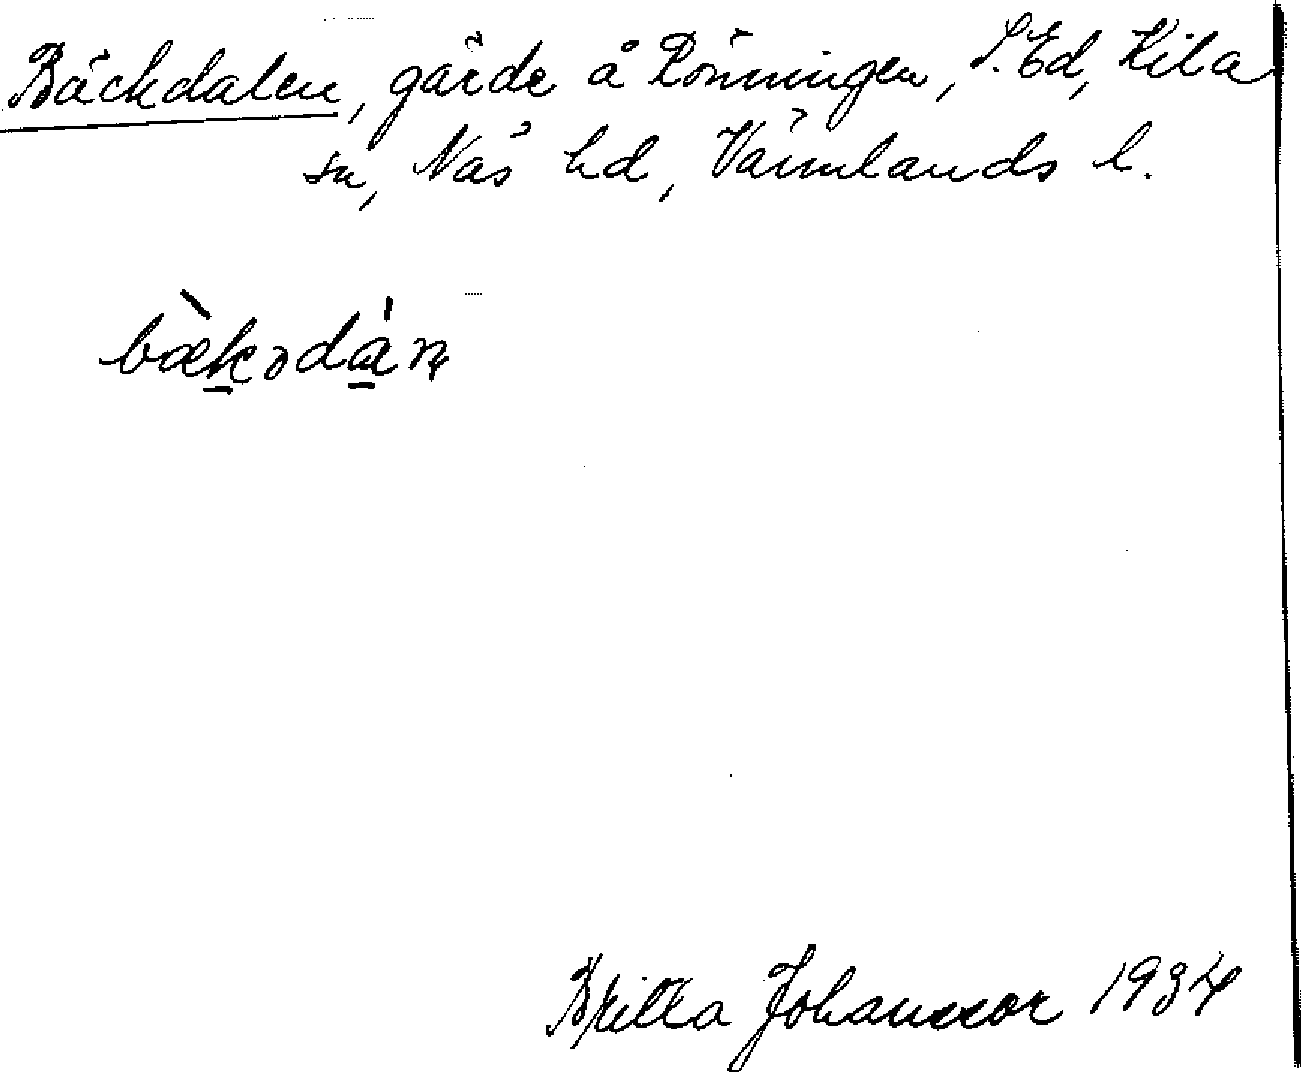 Bäckdalen, gärde å Rönningen, S. Ed, Kila
sn, Näs hd, Värmlands l.
bæ̀kədán
Britta Johansson 1934